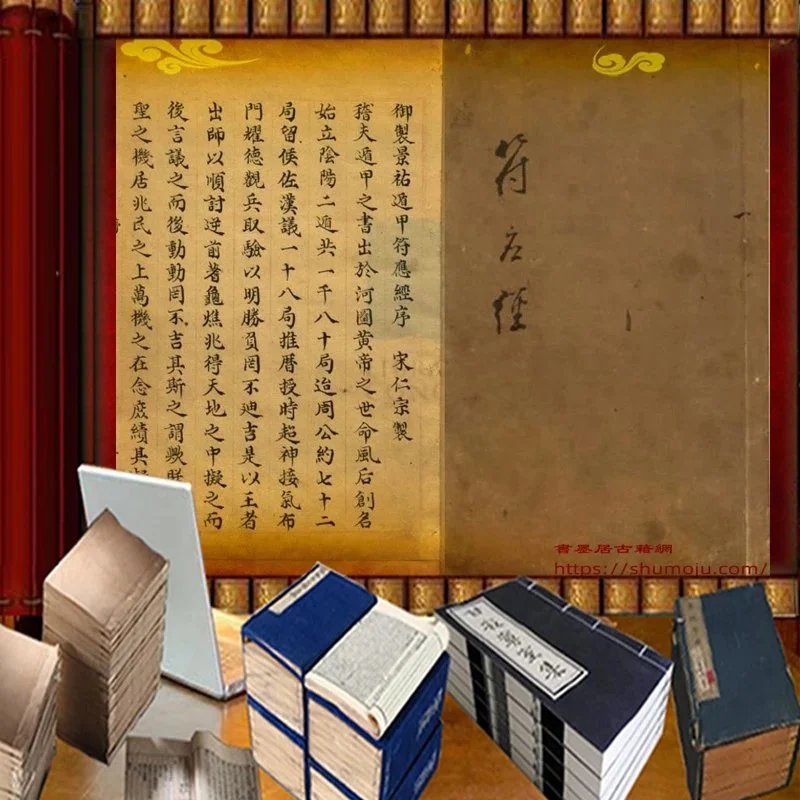 符应經
御製景祐遁甲符應經序 宋仁宗製
稽夫遁甲之書出於河圖黃帝之世命風后創名
始立陰陽二遁共一千八十局迨周公約七十二
局留侯佐漢議一十八局推暦授時超神接氣布
門耀德觀兵取驗以明勝負罔不迪吉是以王者
出師以順討逆前著龜燋兆得天地之中擬之而
後言議之而後動動罔不吉其斯之謂歟朕
聖之機居兆民之上萬機之在念庶績其
書墨居古籍網
https://shumoju.com/